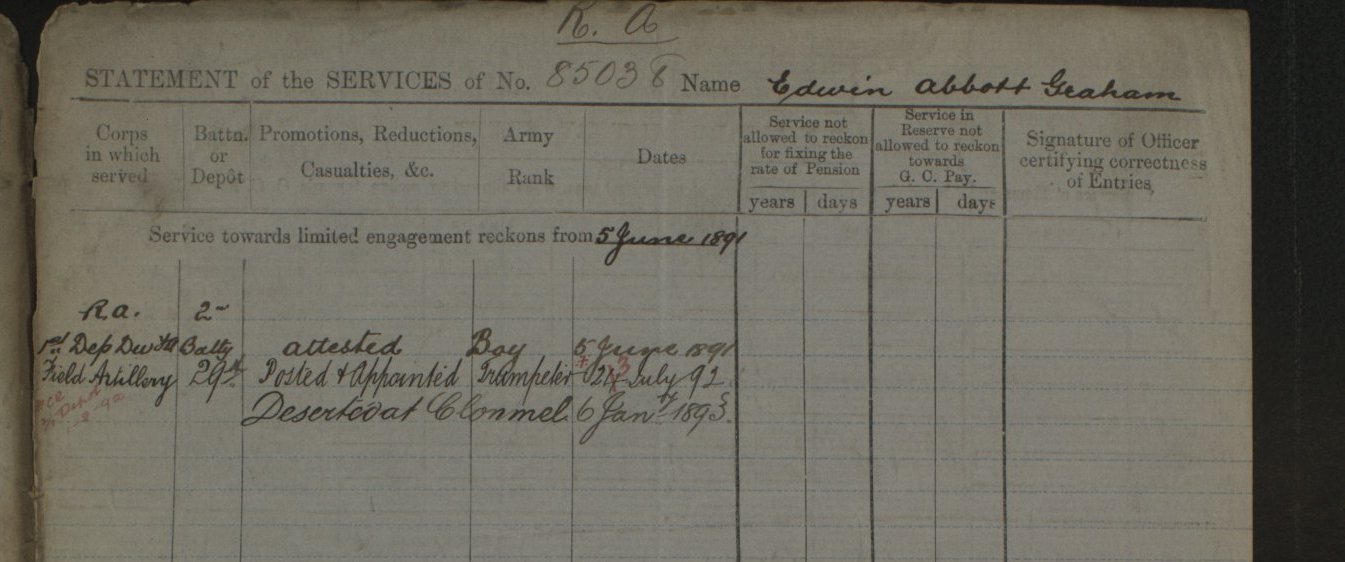 R. A
STATEMENT of the SERVICES of No. 85038 Name Edwin Abbott Graham
Corps in which served
Battn. or Depôt
Promotions, Reductions, Casualties, &c.
Army Rank
Dates
Service not allowed to reckon for fixing the rate of Pension
Service in Reserve not allowed to reckon towards G. C. Pay.
Signature of Officer certifying correctness of Entries
years days years days
Service towards limited engagement reckons from 5 June 1891
R.a. 2
Dep Batty attested Boy 5 June 1891
Field Artillery 29th Posted & Appointed Trumpeter 24 3 July 92
Deserted at Clonmel 6 Jany 1893.